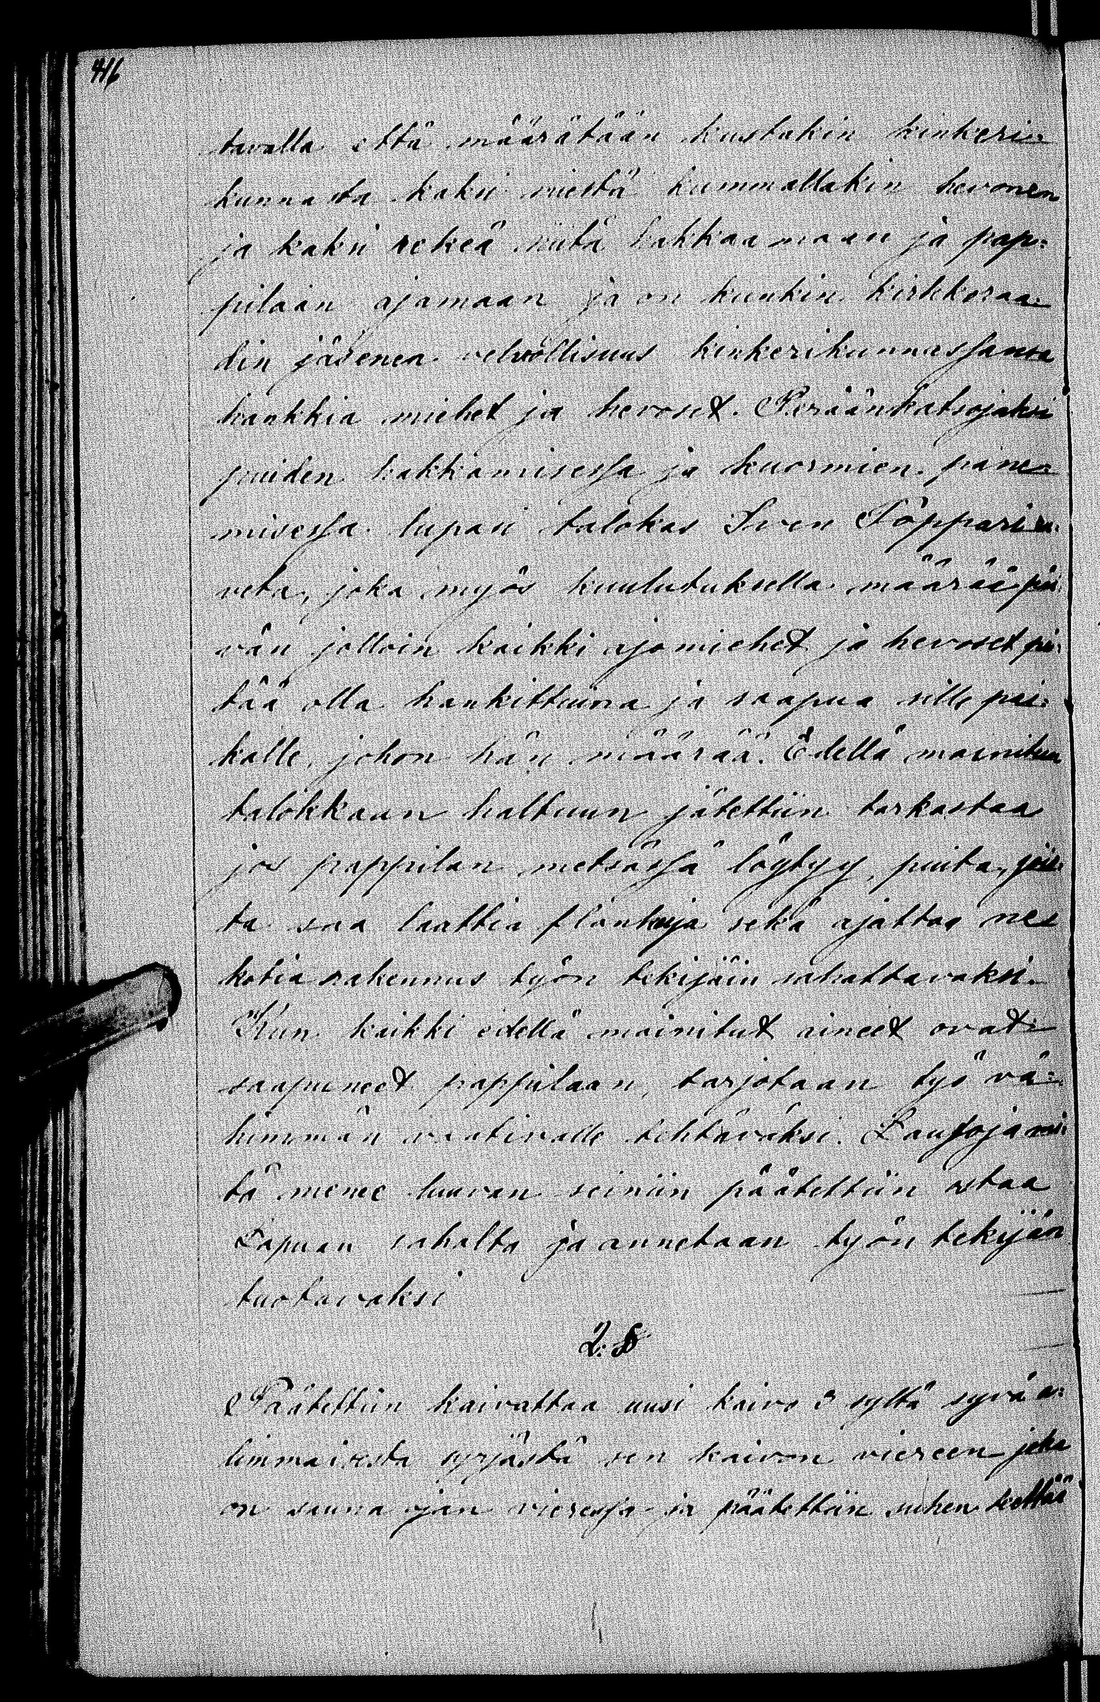 416
tavalla että määrätään kustakin kinkeri=
kunnasta kaksi miestä kummallakin hevonen
ja kaksi rekeä niitä hakkaamaan ja pap=
pilaan ajamaan ja on kunkin kirkkoraa=
din jäsenen velvollisuus kinkerikunnassansa
hankkia miehet ja hevoset. Peräänkatsojaksi
puiden hakkamisessa ja kuormien pane=
misessa lupasi talokas Sven Töppari ru=
veta, joka myös kuulutuksella määrää päi=
vän jolloin kaikki ajomiehet ja hevoset pi=
tää olla hankittuina ja saapua sille pai=
kalle, johon hän määrää. Edellä mainitun
talokkaan haltuun jätettiin tarkastaa
jos pappilan metsässä löytyy puita, jois=
ta saa laattia plankuja sekä ajattaa ne
kotia rakennus työn tekijäin sahattavaksi.
Kun kaikki edellä mainitut aineet ovat
saapuneet pappilaan, tarjotaan työ vä=
himmän vaativalle tehtäväksi. Lautoja mi=
tä menee luuvan seiniin päätettiin ostaa
Lapuan sahalta ja annetaan työn tekijän
tuotavaksi
2. §
Päätettiin kaivattaa uusi kaivo 3 syltä syvä a=
limmaisesta syrjästä sen kaivon viereen joka
on sauna ojan vieressä ja päätettiin siihen teettää